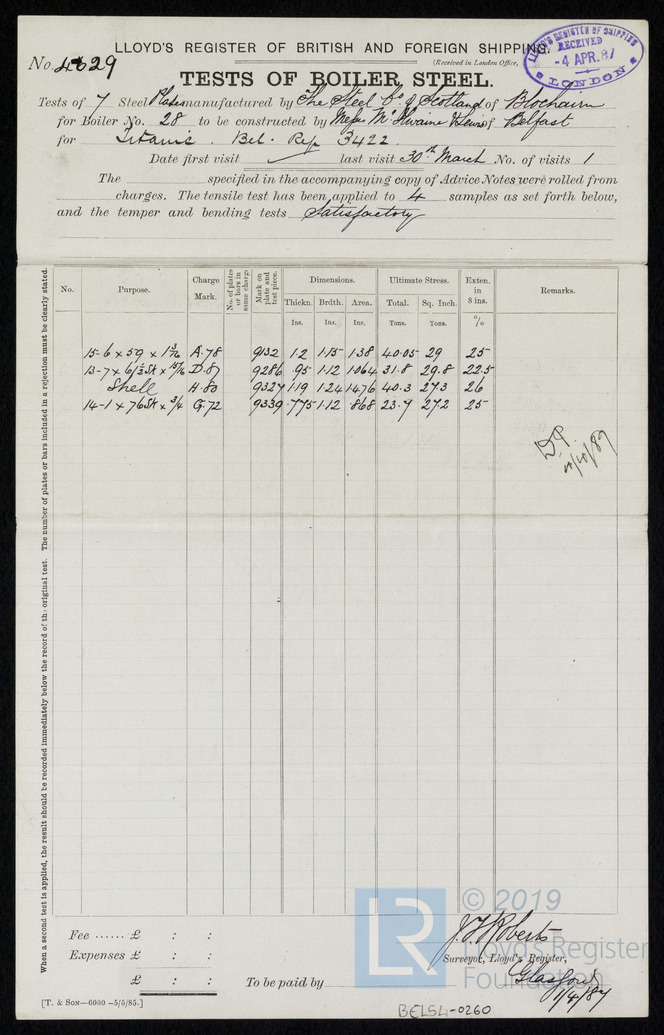 LLOYD'S REGISTER OF BRITISH AND FOREIGN SHIPPING.
LLOYD'S REGISTER OF SHIPPING RECEIVED -4 APR.87 LONDON
No. 4629
(Received in London Office,
TESTS OF BOILER STEEL.
Tests of 7 Steel Plates manufactured by The Steel Co. of Scotland of Blochairn
for Boiler No. 28 to be constructed by Messrs McIlwaine & Lewis of Belfast
for Titanic. Bel. Rep 3422.
Date first visit last visit 30th March No. of visits 1
The specified in the accompanying copy of Advice Notes were rolled from
charges. The tensile test has been applied to 4 samples as set forth below,
and the temper and bending tests Satisfactory
When a second test is applied, the result should be recorded immediately below the record of the original test. The number of plates or bars included in a rejection must be clearly stated.
No. Purpose. Charge Mark. No. of plates or bars in same charge Mark on plate and test piece. Dimensions. Ultimate Stress. Exten. in 8 ins. Remarks.
Thickn. Brdth. Area. Total. Sq. Inch.
Ins. Ins. Ins. Tons. Tons. %
15-6 x 59 x 1 3/16 A.78 9132 1.2 1.15 1.38 40.05 29 25
13-7 x 6 1/2 St x 15/16 D.87 9286 .95 1.12 1.064 31.8 29.8 22.5
Shell H.80 9327 1.19 1.24 1.476 40.3 27.3 26
14-1 x 76 St x 3/4 G.72 9339 .775 1.12 .868 23.7 27.2 25
© 2019
LR
Lloyd's Register
Foundation
Fee ...... £ : :
Expenses £ : :
£ : :
J. F. Roberts
Surveyor, Lloyd's Register,
Glasgow
1/4/87
To be paid by
[T. & Son—6000 —5/5/85.]
BEL54-0260